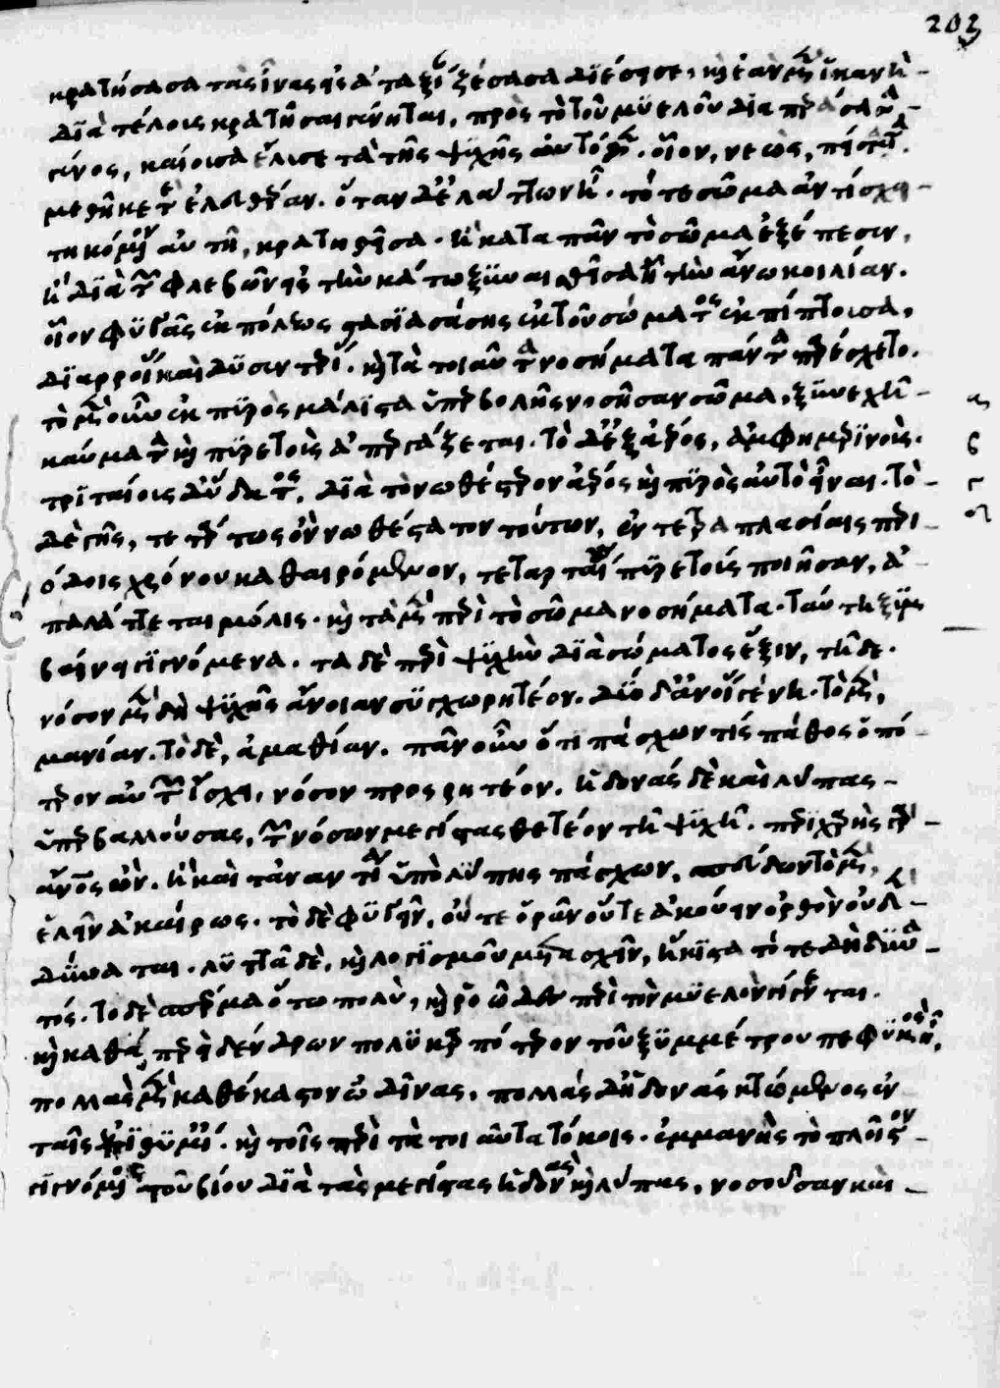 203
κρατήσασα τὰς ἶνας εἰς ἀταξί ζέσασα διέσησε, καὶ ἐὰν μὲν ἱκανὴ
διὰ τέλους κρατῆσαι γένηται, πρὸς τὸ τοῦ μυελοῦ διαπεράσασα
γένος, καίουσα ἔλυσε τὰ τῆς ψυχῆς αὐτόθεν. οἷον, νεὼς, πείσματα.
μεθῆκε τε ἐλευθέραν. ὅταν δὲ ἐλάττων ᾖ. τό τε σῶμα ἀντίσχη
τηκόμενον αὐτὴ, κρατηθεῖσα. ἢ κατα πᾶν τὸ σῶμα ἐξέπεσεν,
ἢ διὰ τῶν φλεβῶν εἰς τὴν κάτω ξυνωσθεῖσα ἢ τὴν ἄνω κοιλίαν.
οἷον φυγὰς ἐκ πόλεως στασιασάσης ἐκ τοῦ σώματος ἐκπίπτουσα,
διαρροίας καὶ δυσεντερίας. καὶ τὰ τοιαῦτα νοσήματα πάντα παρέσχετο.
τὸ μὲν οὖν ἐκ πυρὸς μάλιστα ὑπερβολῆς νοσῆσαν σῶμα, ξυνεχῆ
καύματα καὶ πυρετοὺς ἀπεργάζεται. τὸ δὲ ἐξ ἀέρος, ἀμφημερινοὺς.
τριταίους δ' ὕδατος, διὰ τὸ νωθέστερον ἀέρος καὶ πυρὸς αὐτὸ εἶναι. τὸ
δὲ γῆς, τετάρτως ὂν νωθέστατον τούτων, ἐν τετραπλασίαις περι
όδοις χρόνου καθαιρόμενον, τεταρταίους πυρετοὺς ποιῆσαν, ἀ
παλάττεται μόλις. καὶ τὰ μὲν περὶ τὸ σῶμα νοσήματα. ταύτη ξυμ
βαίνει γιγνόμενα. τα δὲ περὶ ψυχὴν διὰ σώματος ἕξιν, τῆδε.
νόσον μὲν δὴ ψυχῆς ἄνοιαν συγχωρητέον. δύο δ' ἀνοίας γένη. τὸ μὲν,
μανίαν. τὸ δὲ, ἀμαθίαν. πᾶν οὖν ὅτι πάσχων τίς πάθος ὁπό
τερον αὐτῶν ἴσχει, νόσον προσρητέον. ἡδονάς δὲ καὶ λύπας
ὑπερβαλλούσας, τῶν νόσων μεγίστας θετέον τῆ ψυχῆ. περιχαρὴς γὰρ
ἄνος ὢν. ἢ καὶ τἀναντία ὑπὸ λύπης πάσχων, σπεύδων τὸ μὲν,
ἑλεῖν ἀκαίρως. τὸ δὲ φυγεῖν, οὔτε ὁρᾶν οὔτε ἀκούειν ὀρθὸν οὐδὲν
δύναται. λυττᾶ δὲ, καὶ λογισμοῦ μετασχεῖν, ἥκιστα τότε δὴ δυνα
τός. τὸ δὲ σπέρμα ὅτω πολὺ, καὶ ῥοῶδες περὶ τὸν μυελὸν γίγνεται.
καὶ καθάπερ εἰ δένδρων πολυκαρπότερον τοῦ ξυμμέτρου πεφυκὸς ἦ,
πολλὰς μὲν καθέκαστον ὠδῖνας, πολλάς δ' ἡδονάς κτώμενος ἐν
ταῖς ἐπιθυμίαις. καὶ τοῖς περὶ τὰ τοιαῦτα τόκοις. ἐμμανὴς τὸ πλεῖστον
γιγνόμενος τοῦ βίου διὰ τὰς μεγίστας ἡδονὰς καὶ λύπας, νοσοῦσαν καὶ